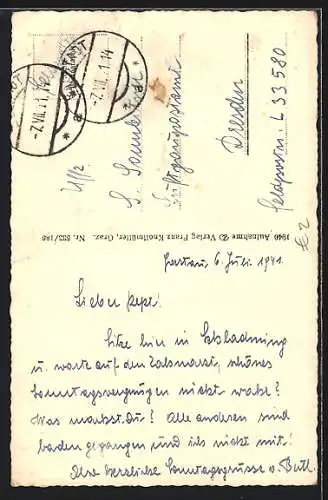 -7.VII.41.14
-7.VII.41.14
Uffz
S. 
Luftgaupostamt
Dresden
Feldpostn. L 33580
1940 Aufnahme Verlag Franz Knollmüller, Graz. Nr. 553/186
6. Juli 1941.
Lieber Pepi!
Sitze hier in Schladming
u. warte auf den Zahnarzt, schönes
Sonntagsvergnügen nicht wahr?
Was machst Du? Alle anderen sind
baden gegangen und ich nicht mit!
herzliche Sonntagsgrüsse v.
€2